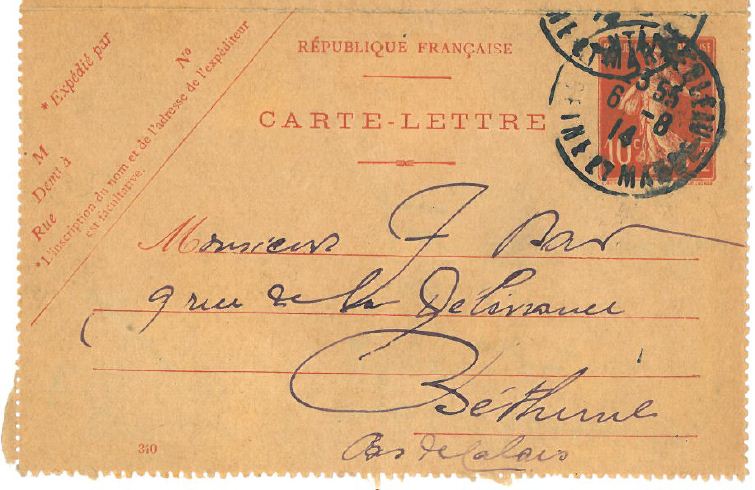 * Expédié par
N°
M
Dem.t à
Rue
* L'inscription du nom et de l'adresse de l'expéditeur
est facultative.
RÉPUBLIQUE FRANÇAISE
CARTE-LETTRE
3 55
6 -8
14
10
Monsieur J
9 rue de la Délivrance
Béthune
Pas de Calais
310